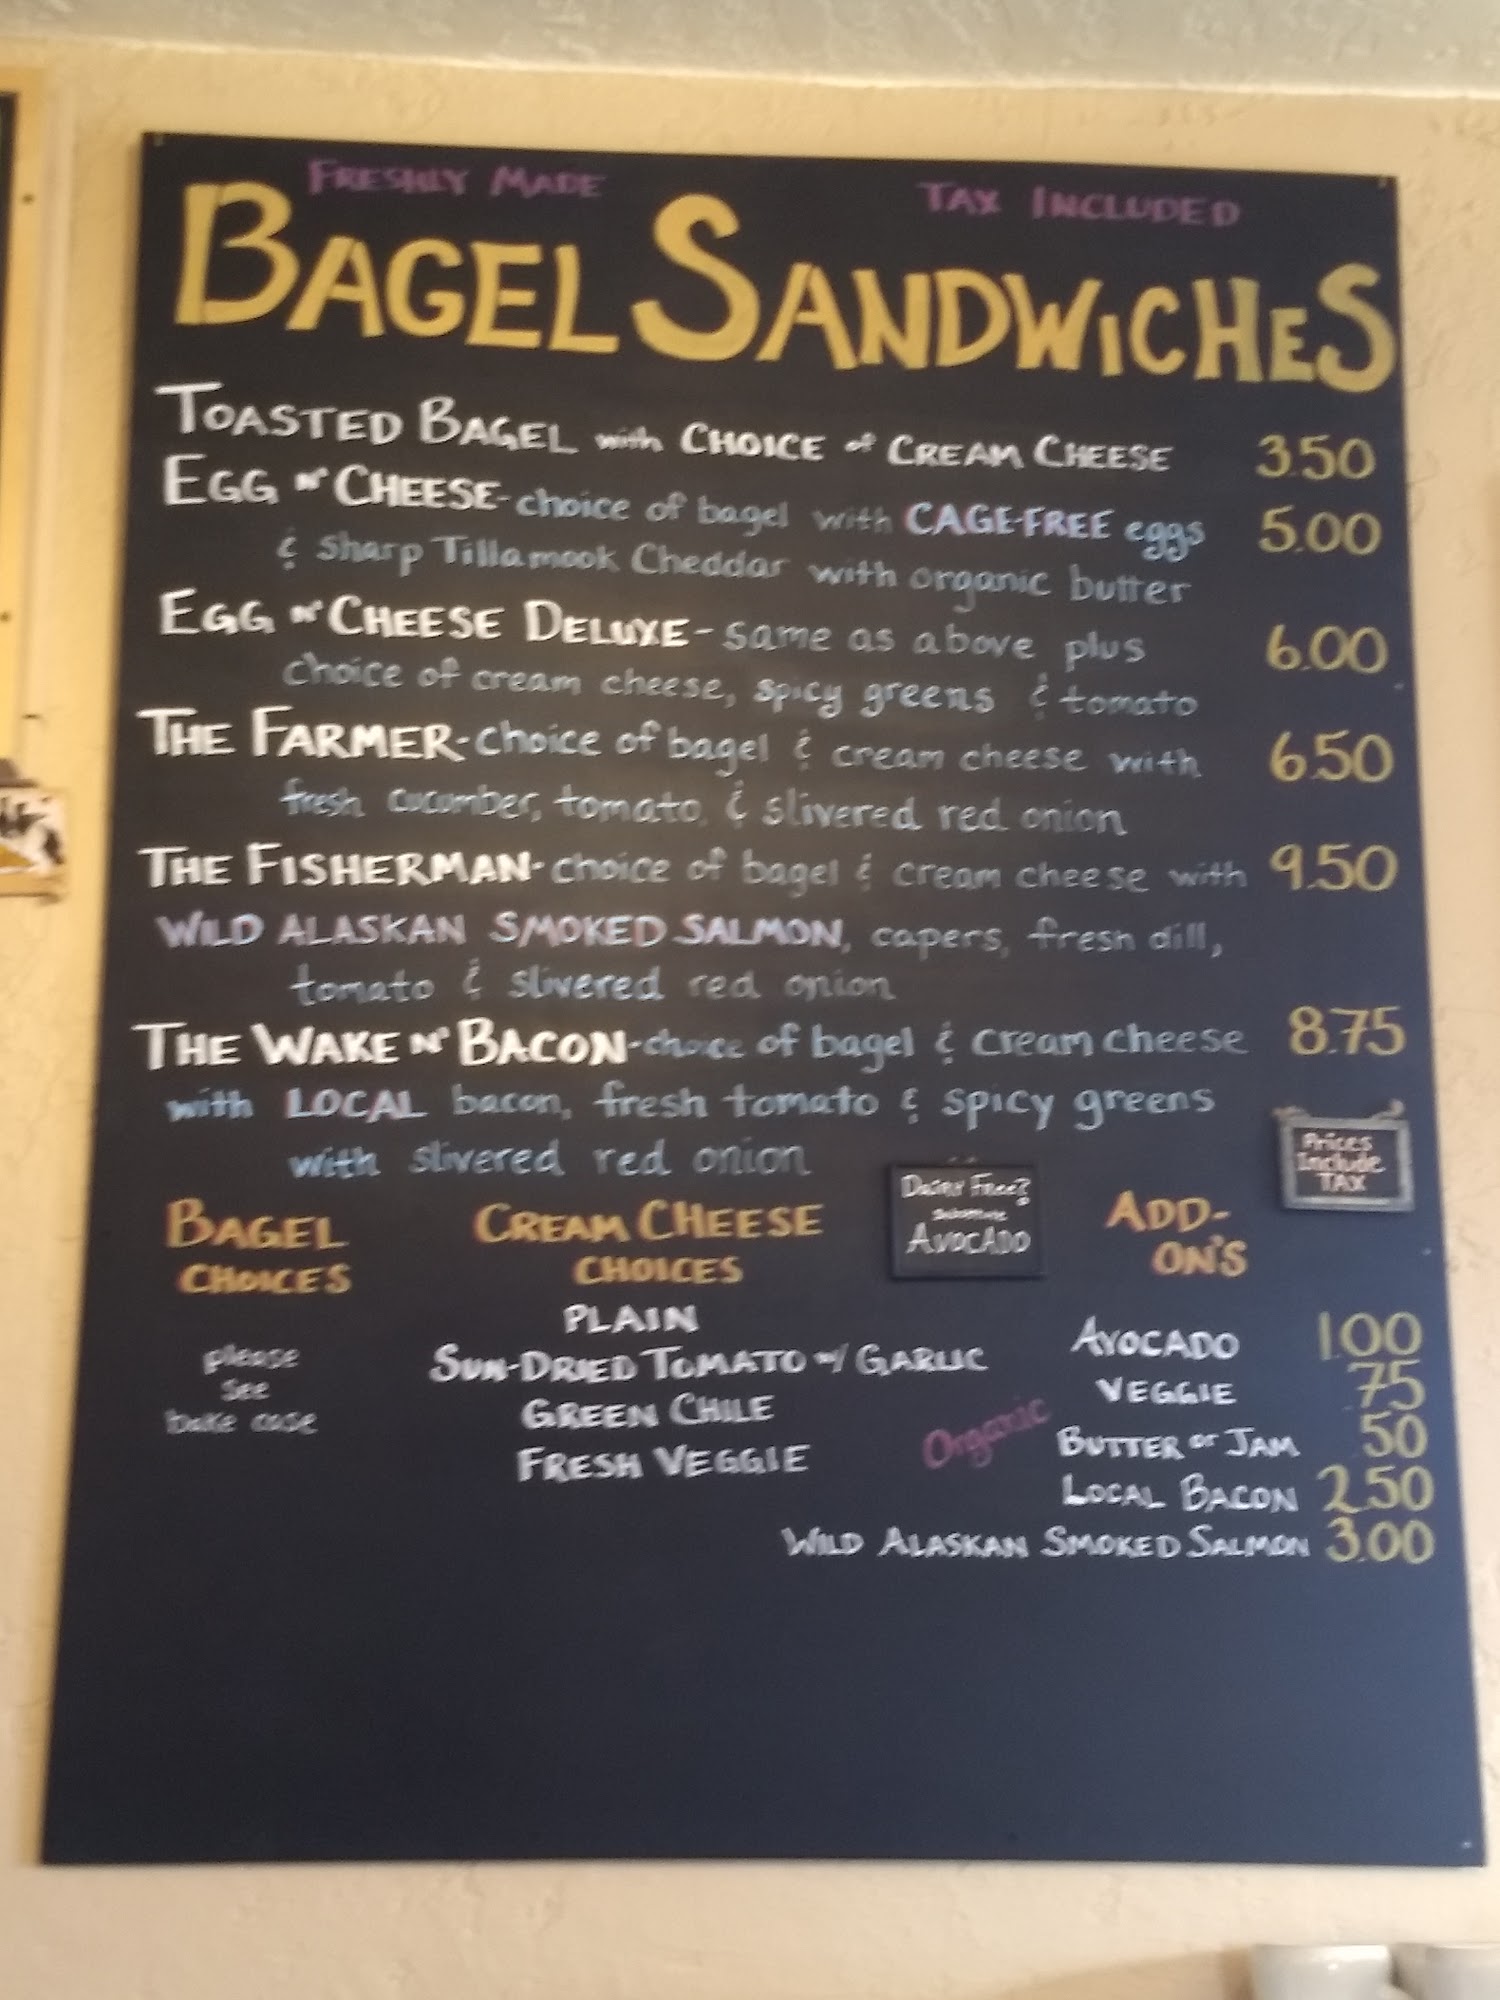 FRESHLY MADE TAX INCLUDED
BAGEL SANDWICHES
TOASTED BAGEL with CHOICE of CREAM CHEESE 3.50
EGG N' CHEESE-choice of bagel with CAGE-FREE eggs 5.00
& sharp Tillamook Cheddar with organic butter
EGG N' CHEESE DELUXE-same as above plus 6.00
choice of cream cheese, spicy greens & tomato
THE FARMER-choice of bagel & cream cheese with 6.50
fresh cucumber, tomato, & slivered red onion
THE FISHERMAN-choice of bagel & cream cheese with 9.50
WILD ALASKAN SMOKED SALMON, capers, fresh dill,
tomato & slivered red onion
THE WAKE N' BACON-choice of bagel & cream cheese 8.75
with LOCAL bacon, fresh tomato & spicy greens
with slivered red onion
Prices
Include
TAX
BAGEL
CHOICES
please
see
bake case
CREAM CHEESE
CHOICES
PLAIN
SUN-DRIED TOMATO w/ GARLIC
GREEN CHILE
FRESH VEGGIE
DAIRY FREE?
Substitute
AVOCADO
ADD-
ON'S
AVOCADO 1.00
VEGGIE .75
Organic BUTTER or JAM .50
LOCAL BACON 2.50
WILD ALASKAN SMOKED SALMON 3.00